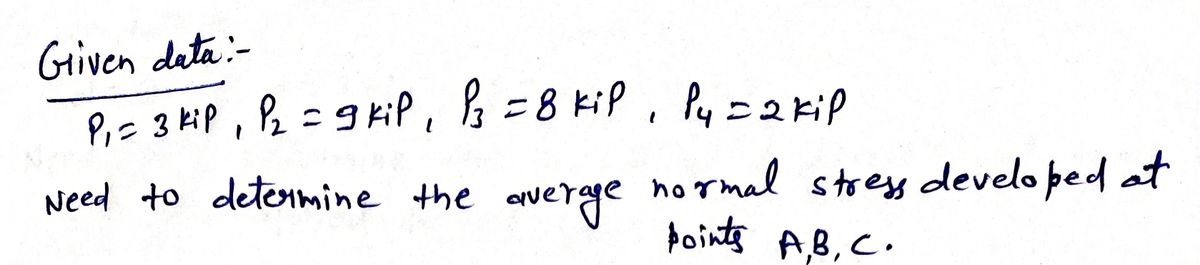 Given data:-
P₁ = 3 kip, P₂ = 9 kip, P₃ = 8 kip, P₄ = 2 kip
Need to determine the average normal stress developed at
points A,B, C.